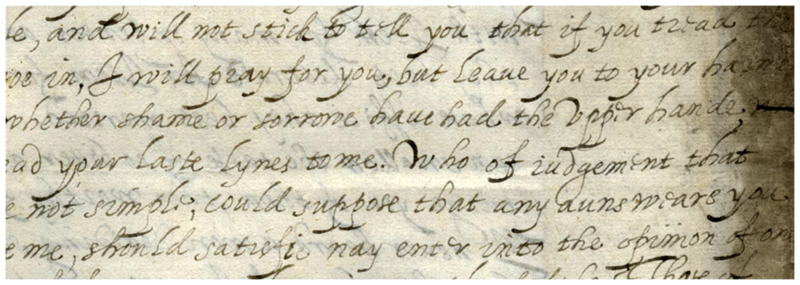 le, and will not stick to tell you that if you tread
in, I will pray for you, but leaue you to your
whether shame or sorrowe haue had the Vpper hande,
ad your laste lynes to me. Who of iudgement that
not simple, could suppose that any aunsweare you
me, should satisfi nay enter into the opinion of